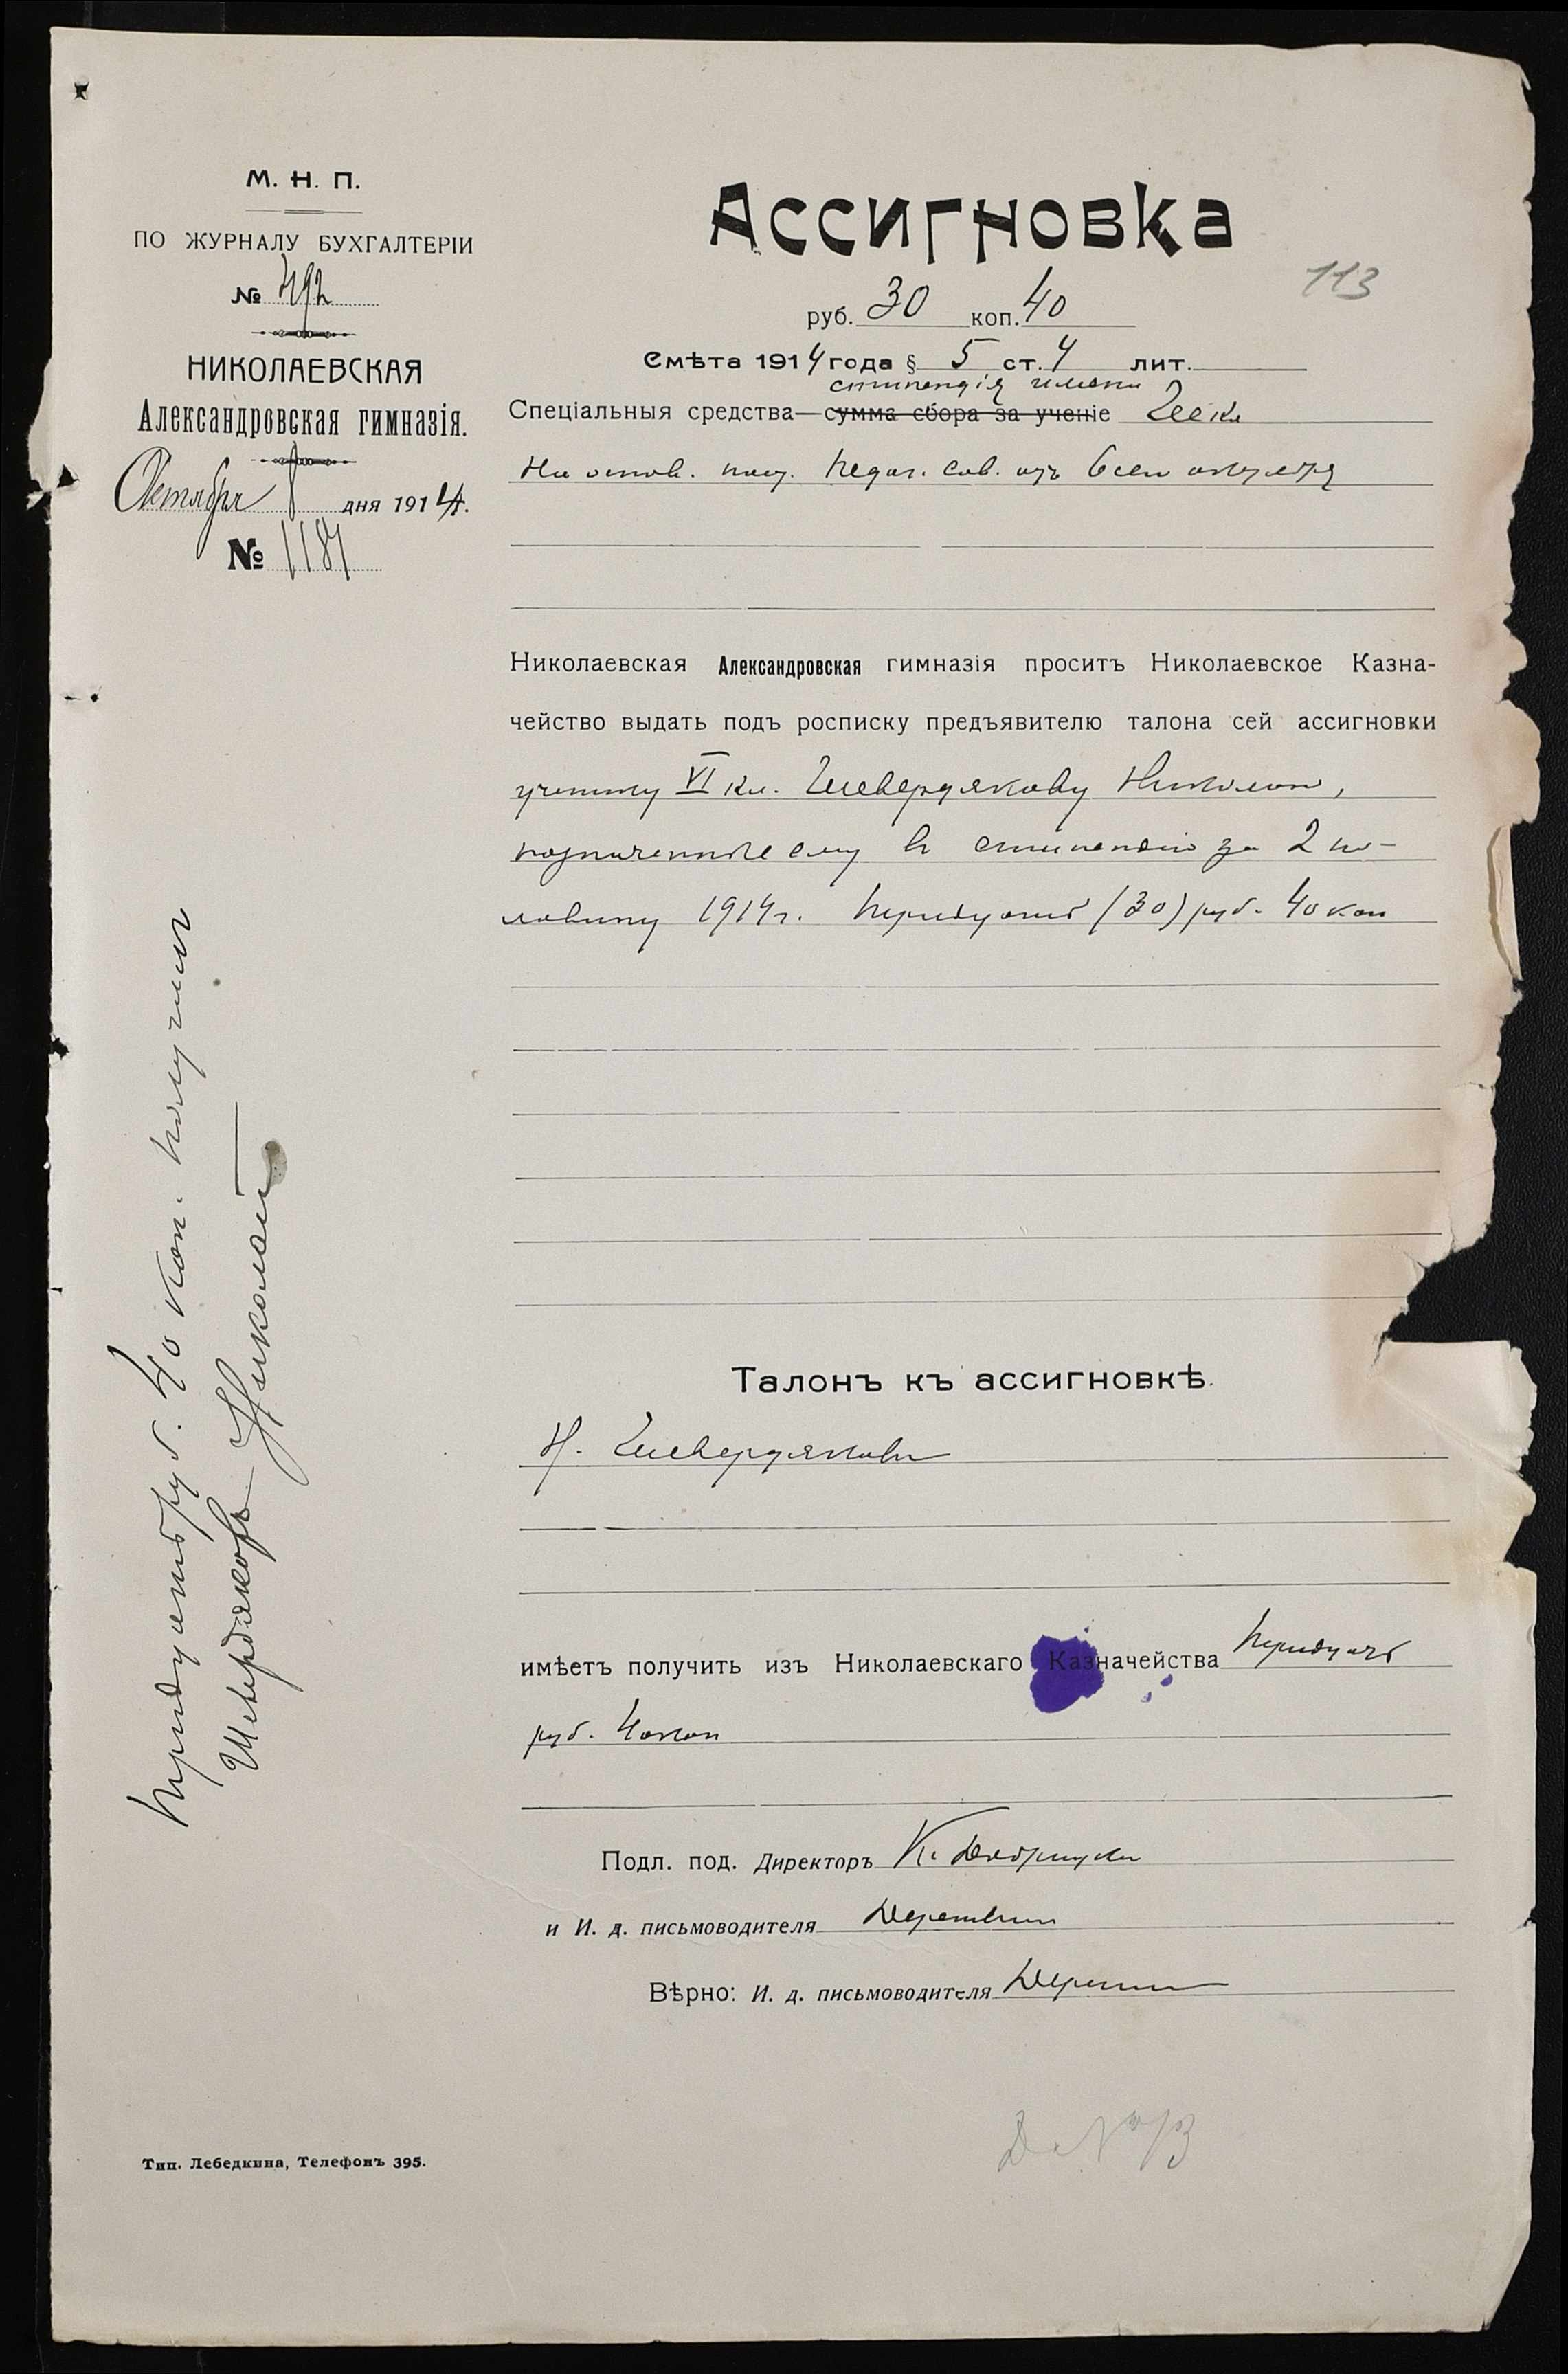 М. Н. П.
ПО ЖУРНАЛУ БУХГАЛТЕРІИ
№ 492
НИКОЛАЕВСКАЯ
Александровская гимназія.
Октября 8 дня 1914.
№ 1187
Ассигновка
113
руб. 30 коп. 40
Смѣта 1914 года § 5 ст. 4 лит.
стипендія имени
Спеціальныя средства—сумма сбора за ученіе
На основ. пост. Педаг. Сов. отъ
Николаевская Александровская гимназія проситъ Николаевское Казна-
чейство выдать подъ росписку предъявителю талона сей ассигновки
ученику VI кл. Шевердякову Николаю,
назначенные ему въ стипендію за 2 по-
ловину 1914 г. тридцать (30) руб. 40 коп
Тридцать руб. 40 коп. получилъ
Шевердяковъ Николай
Талонъ къ ассигновкѣ.
Н. Шевердяковъ
имѣетъ получить изъ Николаевскаго Казначейства тридцать
руб. 40 коп
Подл. под. Директоръ К.
и И. д. письмоводителя
Вѣрно: И. д. письмоводителя
Тип. Лебедкина, Телефонъ 395.